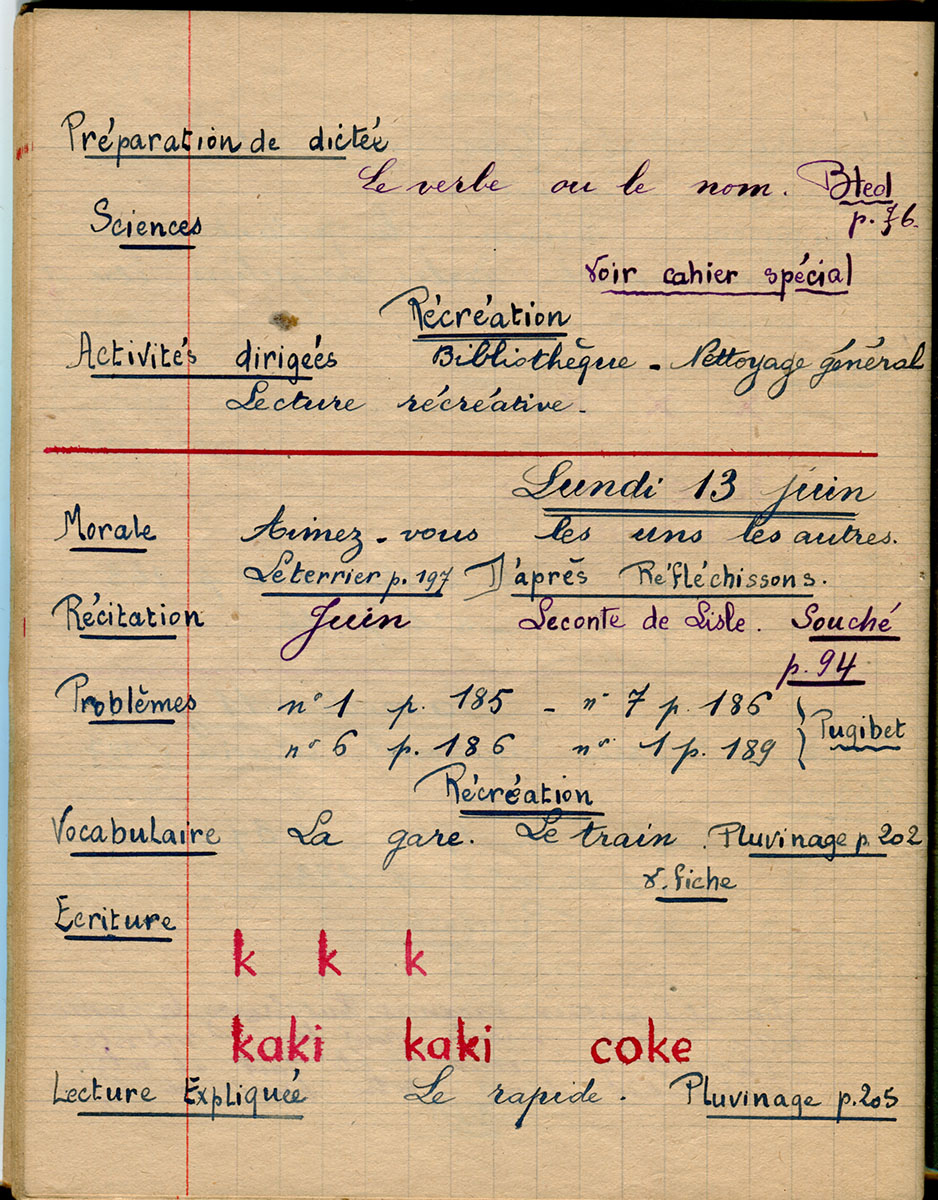 Préparation de dictée
Le verbe ou le nom. Bled
p. 76.
Sciences
voir cahier spécial
Récréation
Activités dirigées Bibliothèque - Nettoyage général
Lecture récréative.
Lundi 13 juin
Morale Aimez-vous les uns les autres.
Leterrier p. 197 D'après Réfléchissons.
Récitation Juin Leconte de Lisle. Souché
p. 94
Problèmes n° 1 p. 185 - n° 7 p. 186
n° 6 p. 186 n° 1 p. 189 } Pugibet
Récréation
Vocabulaire La gare. Le train. Pluvinage p. 202
v. fiche
Ecriture
k k k
kaki kaki coke
Lecture Expliquée Le rapide. Pluvinage p. 205